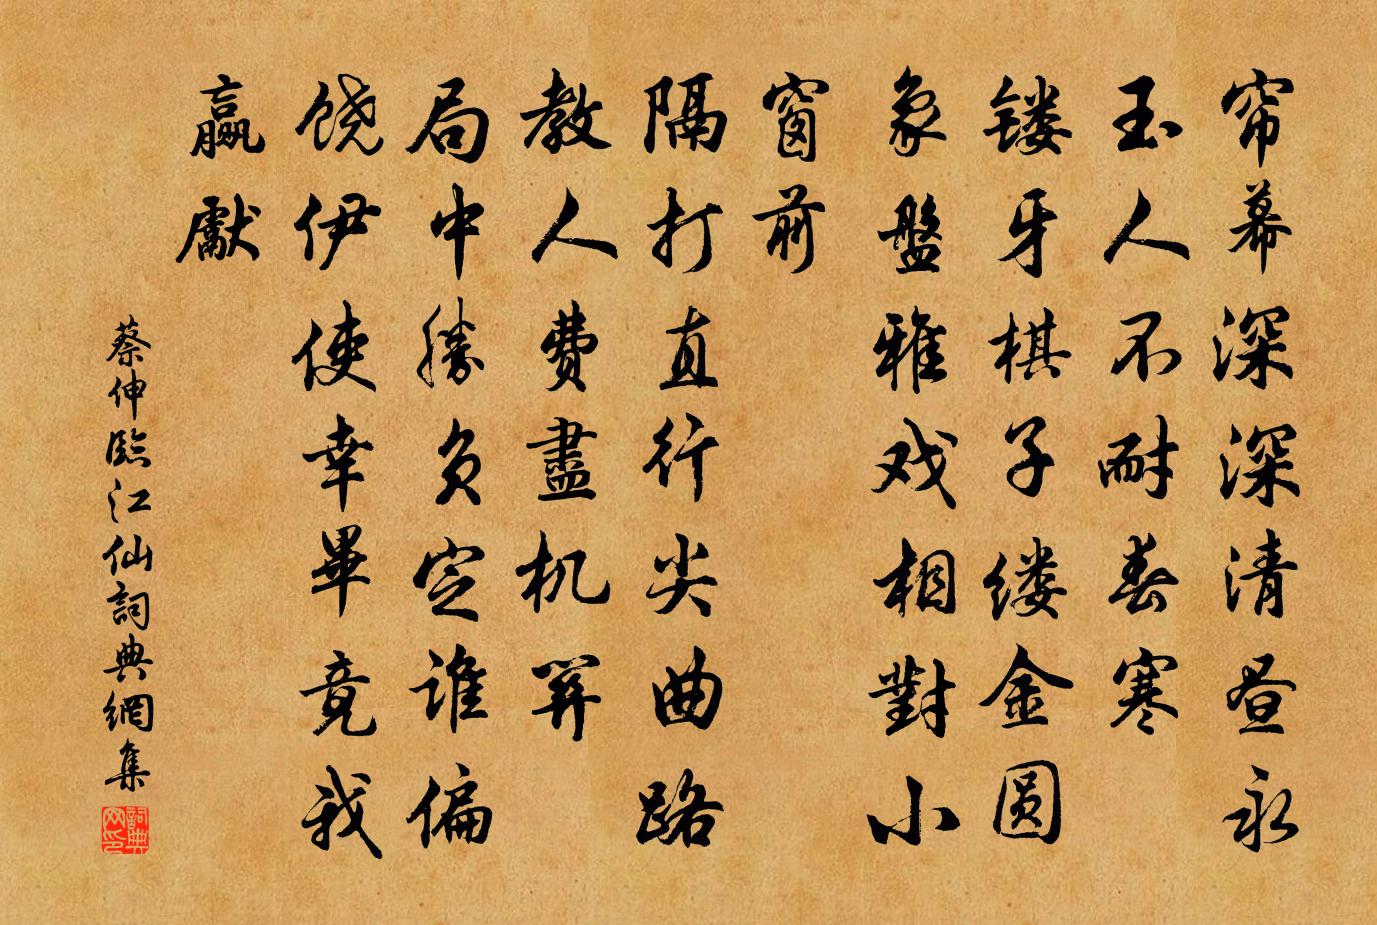 帘幕深深清昼永
玉人不耐春寒
镂牙棋子缕金圆
象盤雅戏相對小
窗前
隔打直行尖曲路
教人費盡机筭
局中勝负定谁偏
饶伊使幸畢竟我
贏獻
蔡伸臨江仙詞典網集
詞典
网印